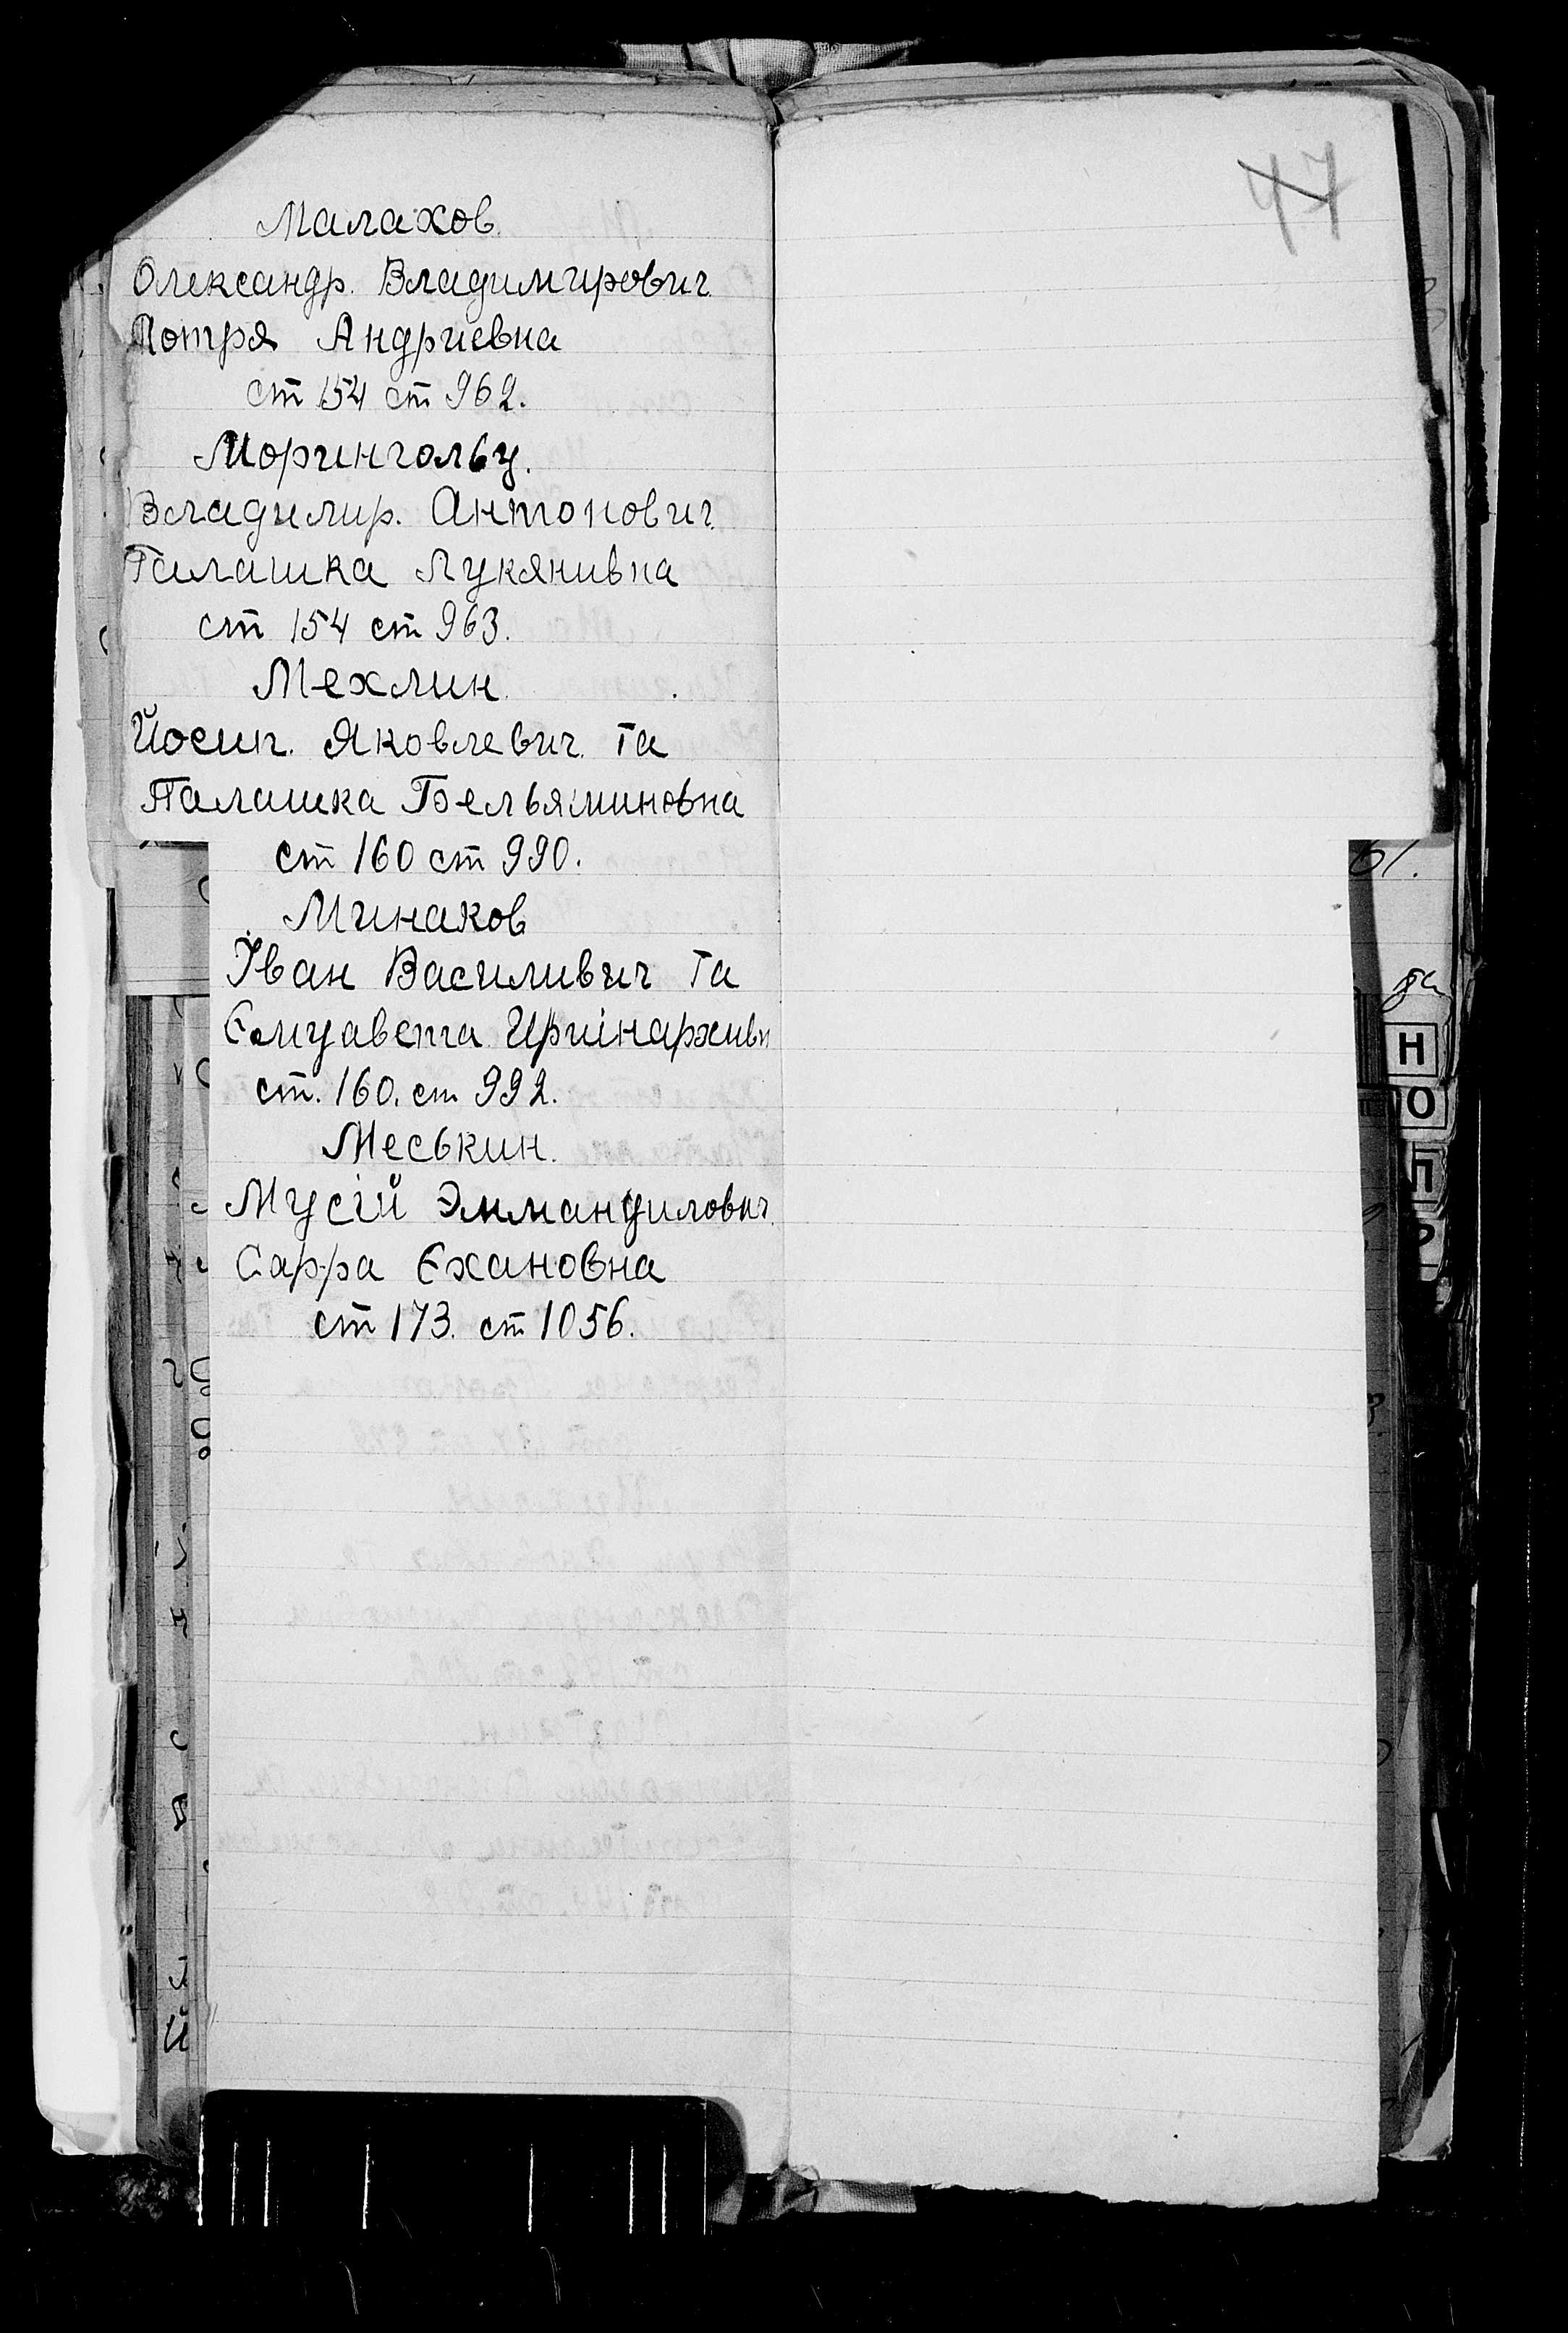 47
Малахов.
Олександр. Владимирович.
Мотря Андриевна
ст 154 ст 962.
Морингольц.
Владимир. Антонович.
Палашка Лукянивна
ст 154 ст 963.
Мехлин.
Йосип. Яковлевич. та
Палашка Бельяминовна
ст 160 ст 990.
Минаков
Іван Василивич та
ст. 160. ст 992.
Меськин.
Мусій Эммануилович.
Сарра Єхановна
ст 173. ст 1056.
61.
Н
О
П
Р